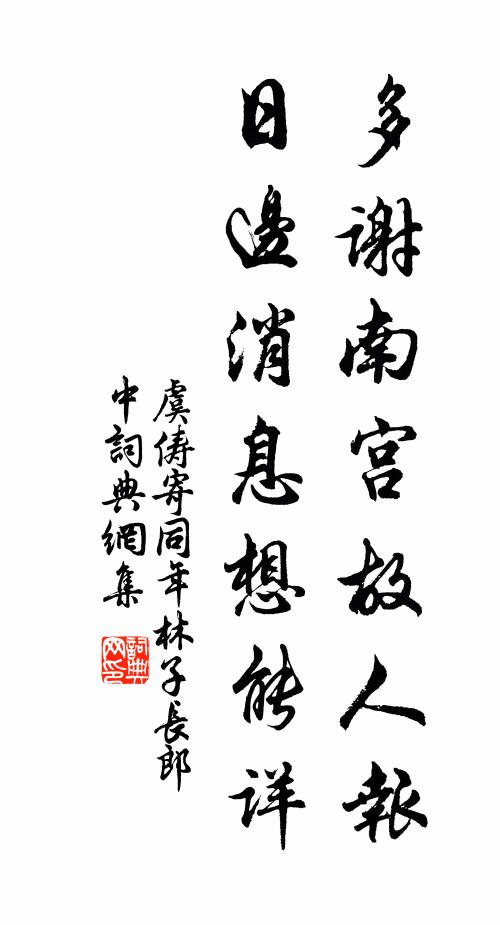 多谢南宫故人報
日邊消息想能详
虞儔寄同年林子長郎
中詞典網集
詞典
网印